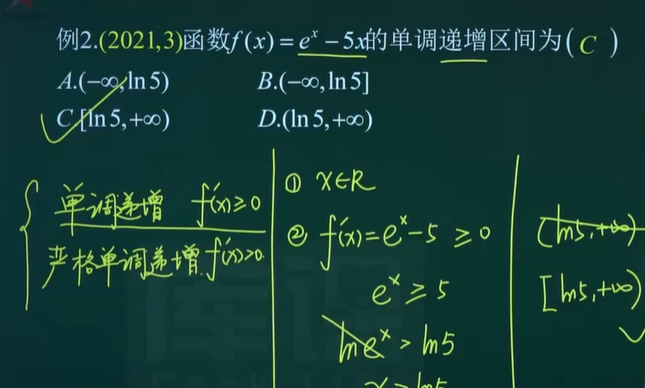 例2.(2021,3)函数f(x)=eˣ-5x的单调递增区间为( C )
A.(-∞,ln5) B.(-∞,ln5]
C.[ln5,+∞) D.(ln5,+∞)
单调递增 f'(x)≥0
严格单调递增 f'(x)>0.
① x∈R
② f'(x)=eˣ-5≥0
eˣ≥5
lneˣ>ln5
x>ln5
(ln5,+∞)
[ln5,+∞)